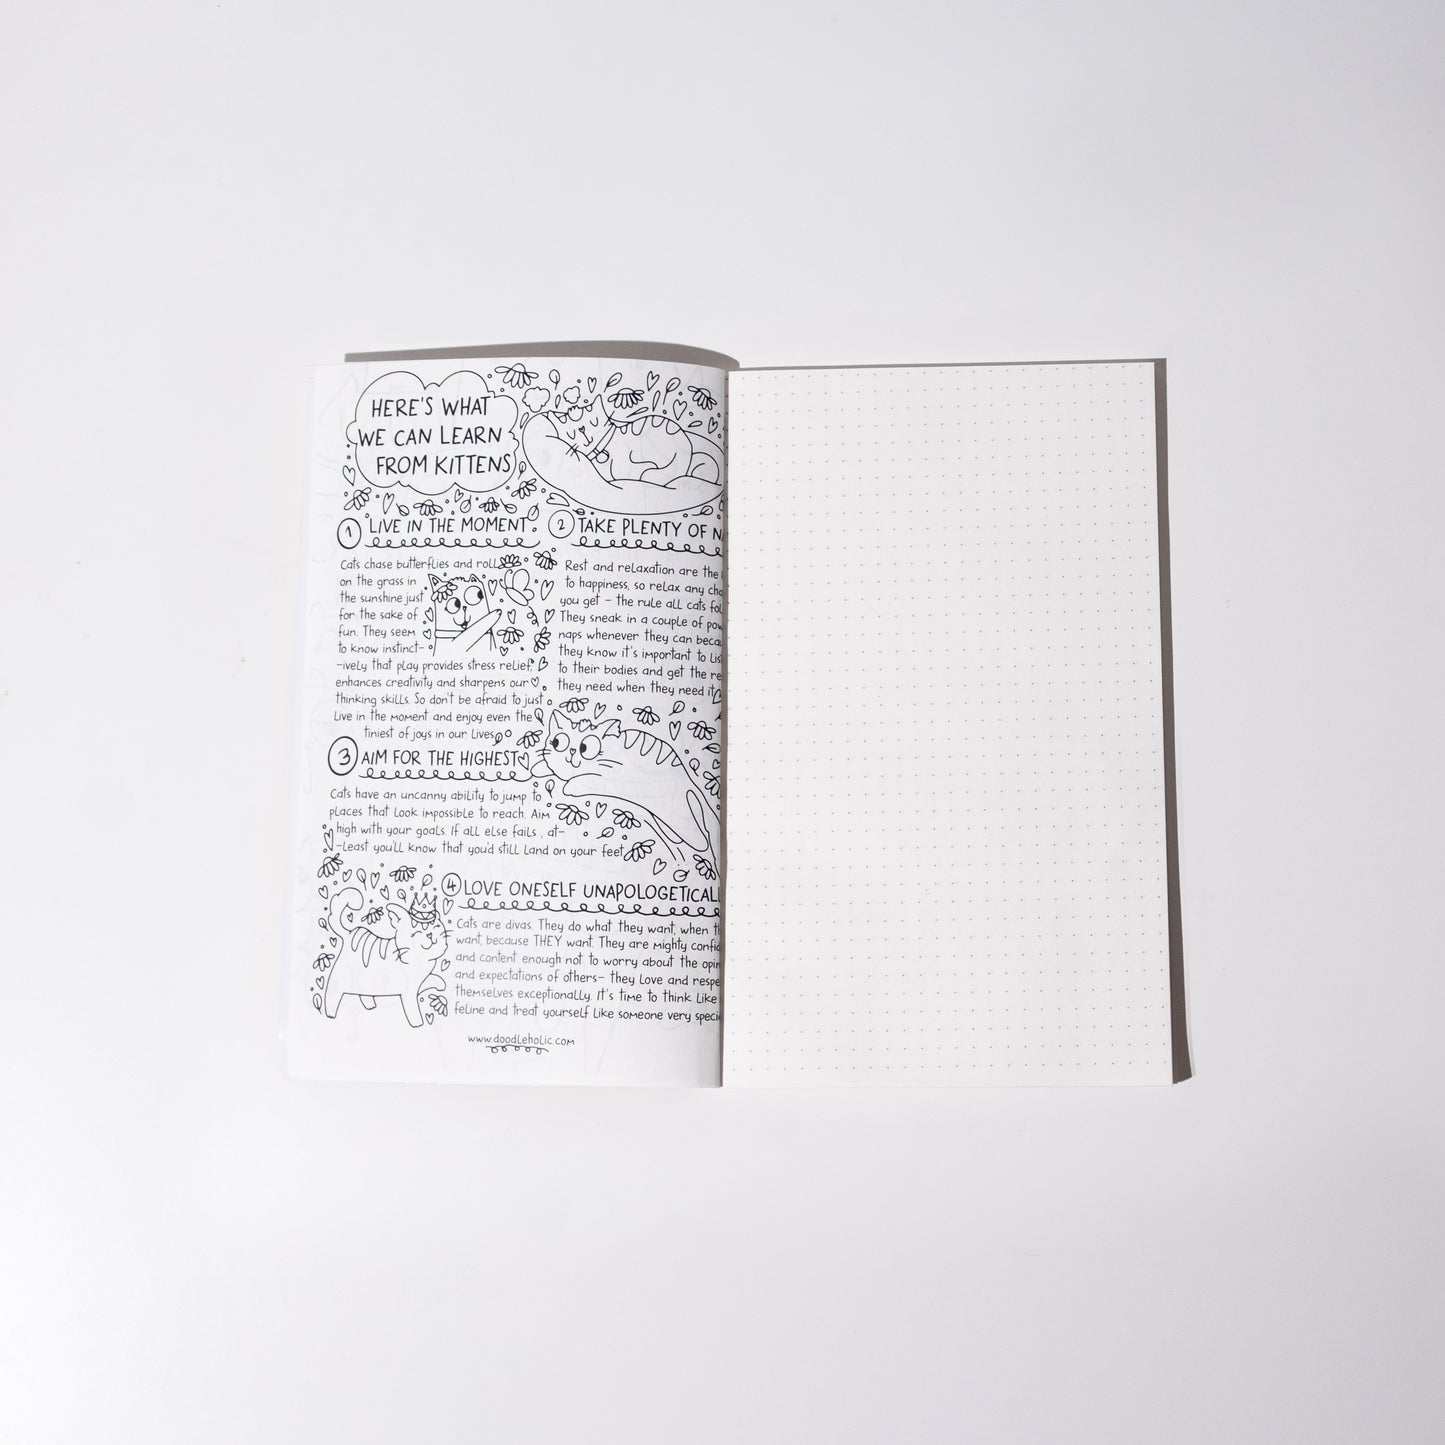 HERE'S WHAT
WE CAN LEARN
FROM KITTENS
1 LIVE IN THE MOMENT
Cats chase butterflies and roll
on the grass in
the sunshine just
for the sake of
fun. They seem
to know instinct-
-ively that play provides stress relief,
enhances creativity and sharpens our
thinking skills. So don't be afraid to just
live in the moment and enjoy even the
tiniest of joys in our lives
2 TAKE PLENTY OF
Rest and relaxation are the
to happiness, so relax any
you get - the rule all cats
They sneak in a couple of
naps whenever they can
they know it's important to
to their bodies and get the
they need when they need it
3 AIM FOR THE HIGHEST
Cats have an uncanny ability to jump to
places that look impossible to reach. Aim
high with your goals. If all else fails, at-
-least you'll know that you'd still land on your feet
4 LOVE ONESELF UNAPOLOGETICALL
Cats are divas. They do what they want, when
want, because THEY want. They are mighty
and content enough not to worry about the
and expectations of others- they love and
themselves exceptionally. It's time to think like
feline and treat yourself like someone very
www.doodleholic.com